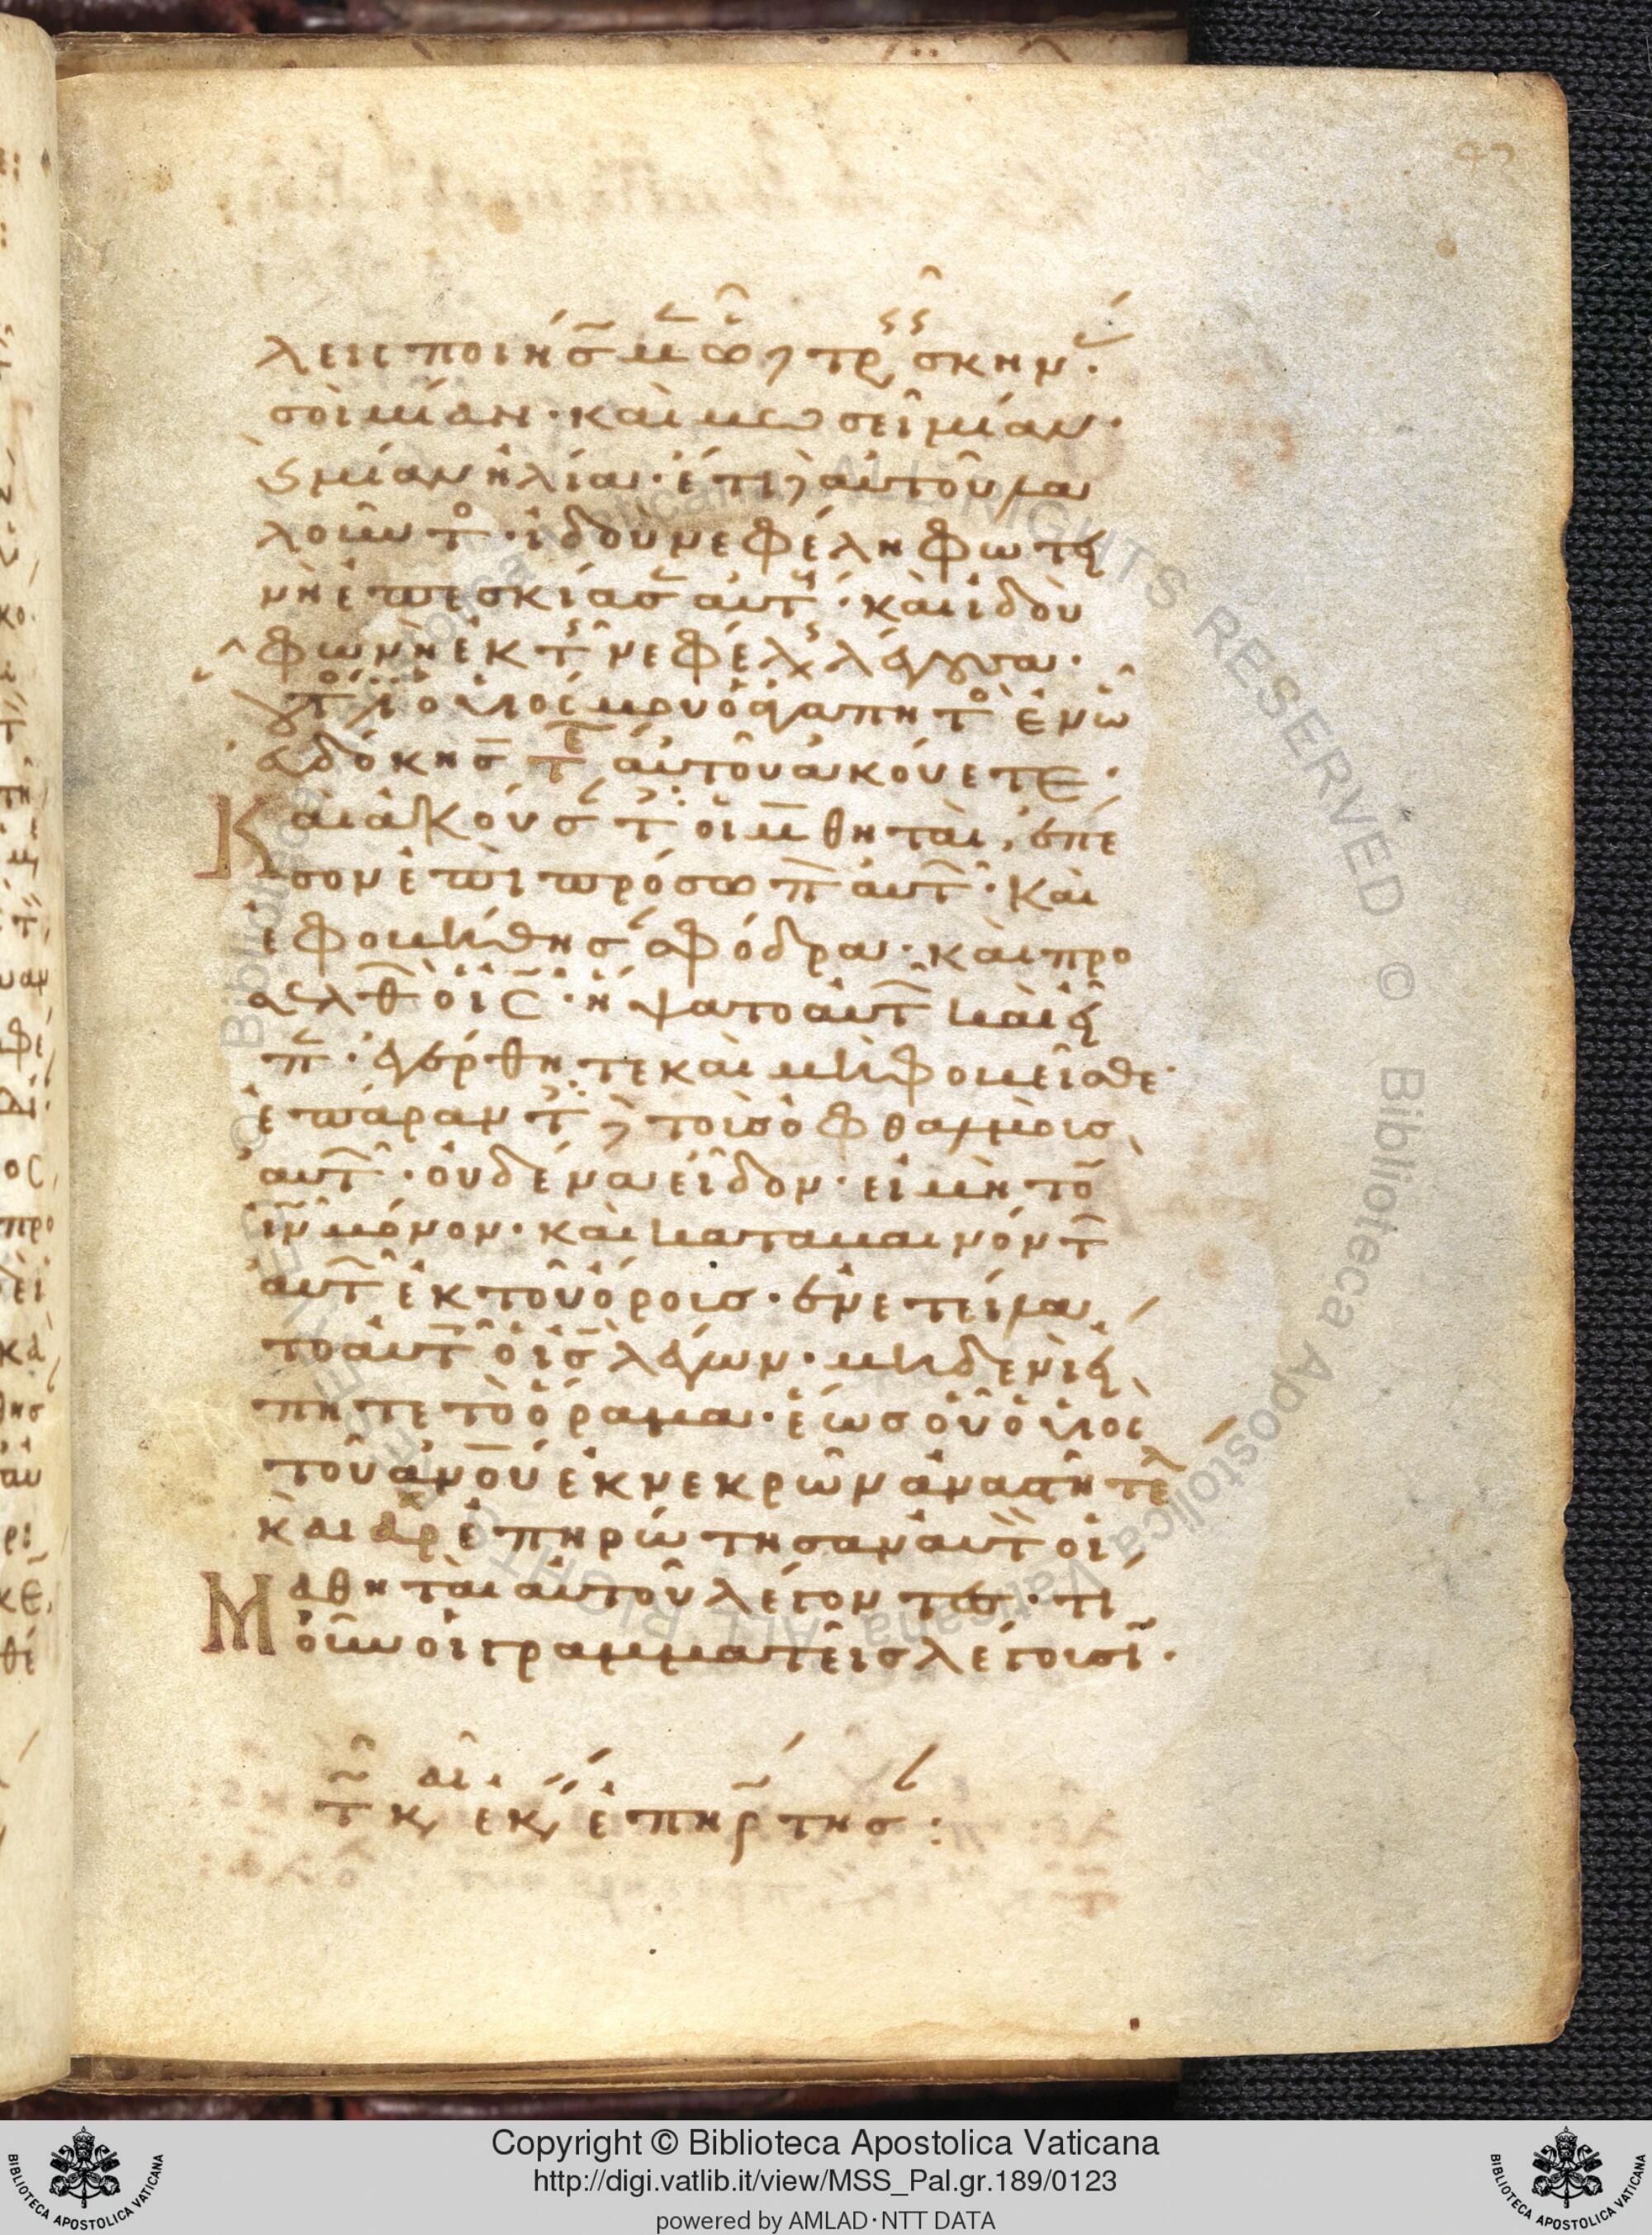 λεις ποιήσωμεν ὧδε τρεῖς σκηνάς·
σοὶ μίαν· καὶ μωσεῖ μίαν·
καὶ μίαν ἠλία· ἔτι δὲ αὐτοῦ λα
λοῦντος· ἰδοὺ νεφέλη φωτει
νὴ ἐπεσκίασεν αὐτούς· καὶ ἰδοὺ
φωνὴ ἐκ τῆς νεφέλης λέγουσα·
οὗτός ἐστιν ὁ υἱός μου ὁ ἀγαπητὸς ἐν ὧ
εὐδόκησα αὐτοῦ ἀκούετε·
Καὶ ἀκούσαντες οἱ μαθηταὶ, ἔπε
σον ἐπὶ πρόσωπον αὐτῶν· καὶ
ἐφοβήθησαν σφόδρα· καὶ προσ
ελθὼν ὁ ις· ἥψατο αὐτῶν καὶ εἶ
πεν· ἐγέρθητε καὶ μὴ φοβεῖσθε·
ἐπάραντες δὲ τοὺς ὀφθαλμοὺς
αὐτῶν· οὐδένα εἶδον· εἰ μὴ τὸν
ιν μόνον· καὶ καταβαινόντων
αὐτῶν ἐκ τοῦ ὄρους· ἐνετείλα
το αὐτοῖς ὁ ις λέγων· μηδενὶ εἴ
πητε τὸ ὅραμα· ἕως οὗ ὁ υἱὸς
τοῦ ανου ἐκ νεκρῶν ἀναστῆ τελ
καὶ αρχ ἐπηρώτησαν αὐτὸν οἱ
Μαθηταὶ αὐτοῦ λέγοντες· τί
οὖν οἱ γραμματεῖς λέγουσιν·
τῶ καιρῶ ἐκείνω ἐπηρώτησαν:
Copyright © Biblioteca Apostolica Vaticana
http://digi.vatlib.it/view/MSS_Pal.gr.189/0123
powered by AMLAD·NTT DATA
BIBLIOTECA APOSTOLICA VATICANA
BIBLIOTECA APOSTOLICA VATICANA
© Biblioteca Apostolica Vaticana ALL RIGHTS RESERVED